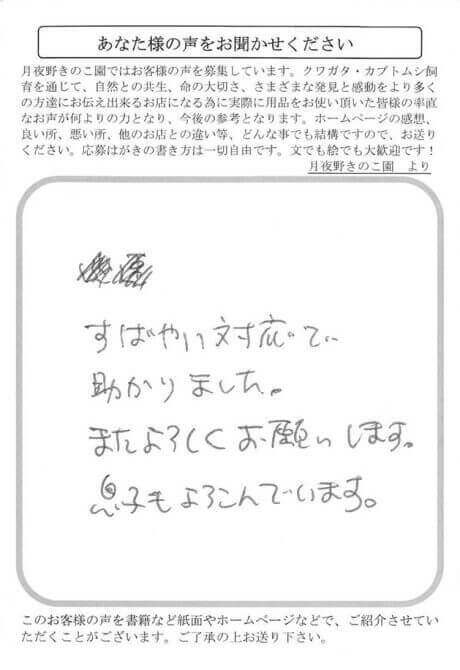 あなた様の声をお聞かせください
月夜野きのこ園ではお客様の声を募集しています。クワガタ・カブトムシ飼
育を通じて、自然との共生、命の大切さ、さまざまな発見と感動をより多く
の方達にお伝え出来るお店になる為に実際に用品をお使い頂いた皆様の率直
なお声が何よりの力となり、今後の参考となります。ホームページの感想、
良い所、悪い所、他のお店との違い等、どんな事でも結構ですので、お送り
ください。応募はがきの書き方は一切自由です。文でも絵でも大歓迎です！
月夜野きのこ園 より
すばやい対応で
助かりました。
またよろしくお願いします。
息子もよろこんでいます。
このお客様の声を書籍など紙面やホームページなどで、ご紹介させてい
ただくことがございます。ご了承の上お送り下さい。